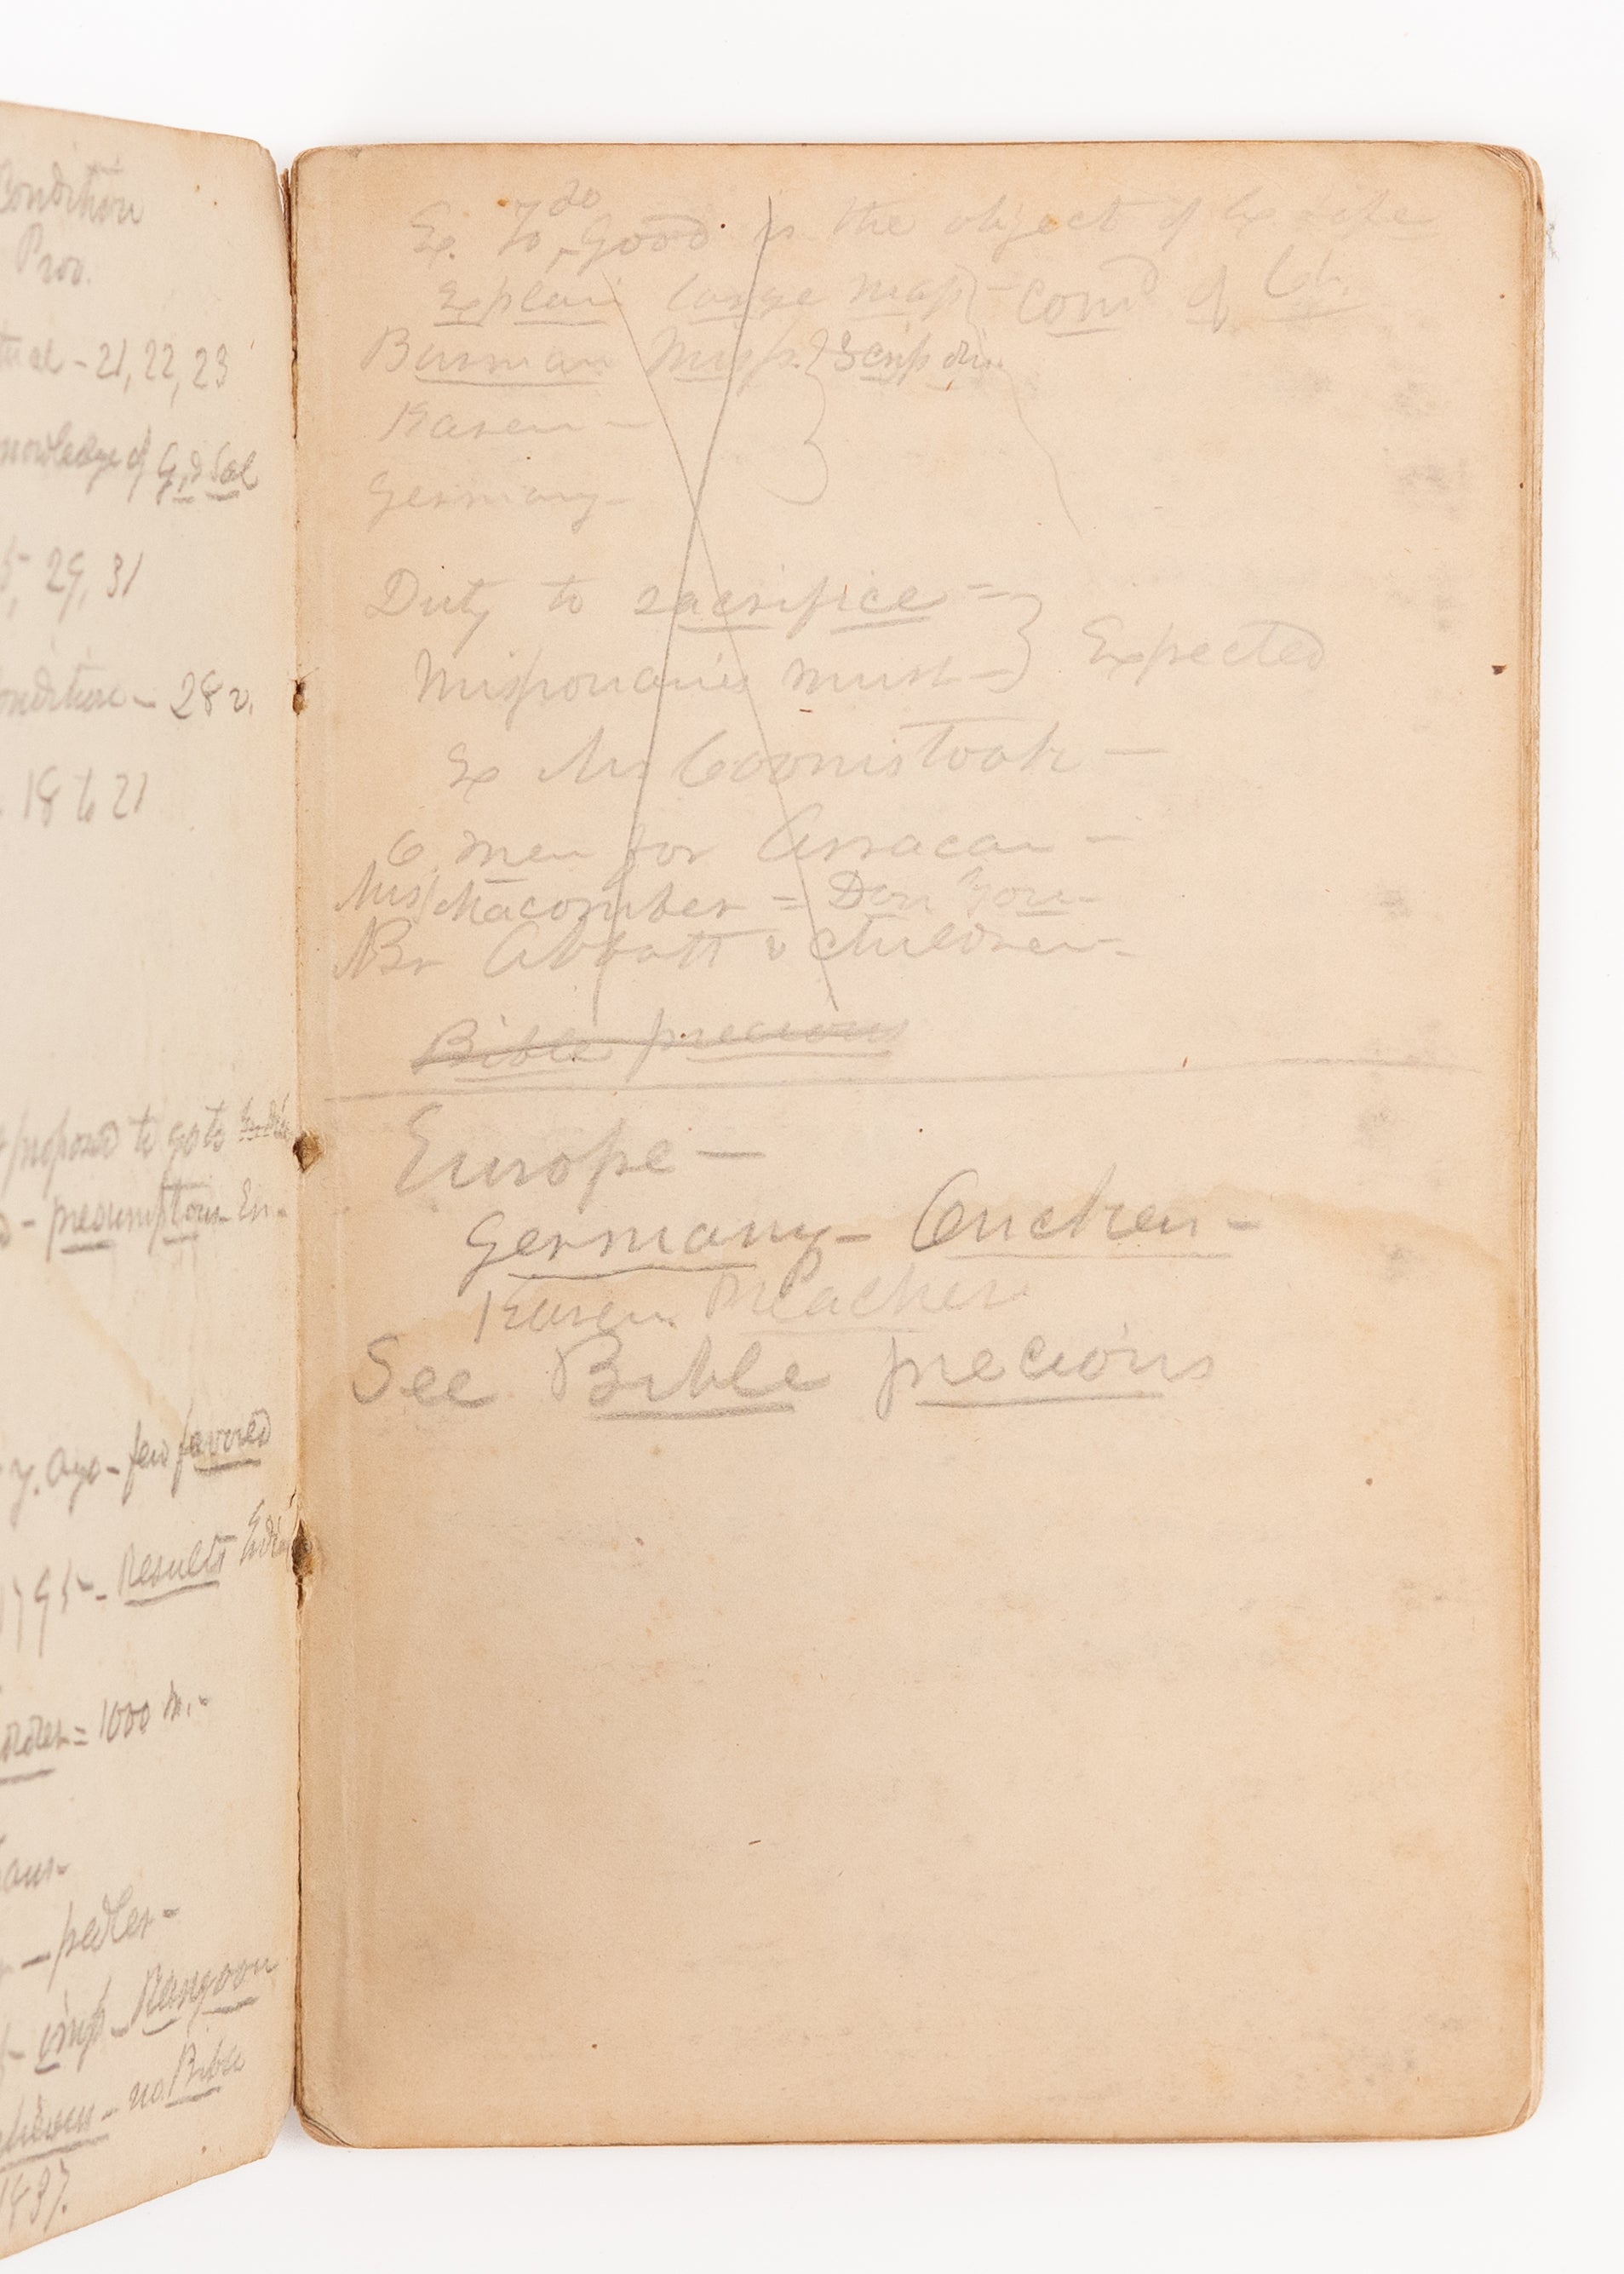 Condition
Prov.
- 21, 22, 23
nowledge of G. & Sal
5, 29, 31
ondition - 28 v.
18 to 21
proposed to go to India
- presumptous En-
y. ago - few favored
1795 - Results
order = 1000 m. -
- pedler -
- imp - Rangoon
- no Bible
1837.
Ex. To do good is the object of life
Explain large map - Cond of Ch.
Burman Miss. Scrip
Karen -
Germany -
Duty to sacrifice =
Missionaries must - Expected
Ex Mr Coomstook -
6 men for Arracan -
Miss Macomber = Don You -
Br Abbott & children -
Bible precious
Europe -
Germany - Onchen -
Karen Preacher
See Bible precious